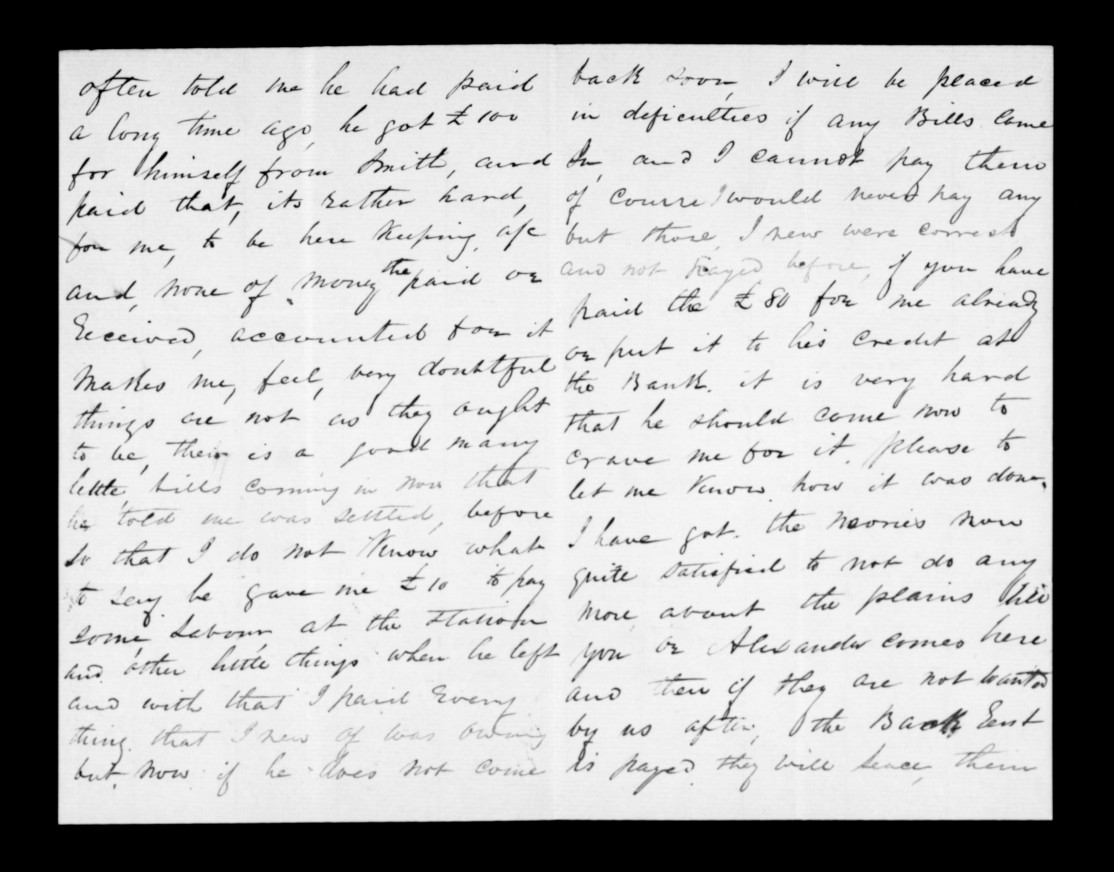 often told me he had paid
a long time ago, he got £100
for himself from Smith, and
paid that, its rather hard,
for me, to be here Keeping, a/c
and, none of the money paid or
Received, accounted for it
Makes me, feel, very doubtful
things are not as they ought
to be, their is a good many
little, bills coming in now that
he told me was settled, before
So that I do not Know what
to say he gave me £10 to pay
some, Labour at the Station
and other little things when he left
and with that I paid Every
thing that I new of was owing
but, now if he does not come
back soon, I will be placed
in deficulties if any Bills Came
In, and I cannot pay them
of Course I would never pay any
but those, I new were correct
and not payed before, if you have
paid the £80 for me already
or put it to his Credit at
the Bank. it is very hard
that he should come now to
crave me for it. please to
let me Know how it was done,
I have got the Maories now
quite satisfied to not do any
more about the plains till
you or Alexander comes here
and then if they are not wanted
by us after, the Back Rent
is payed they will Leace, them